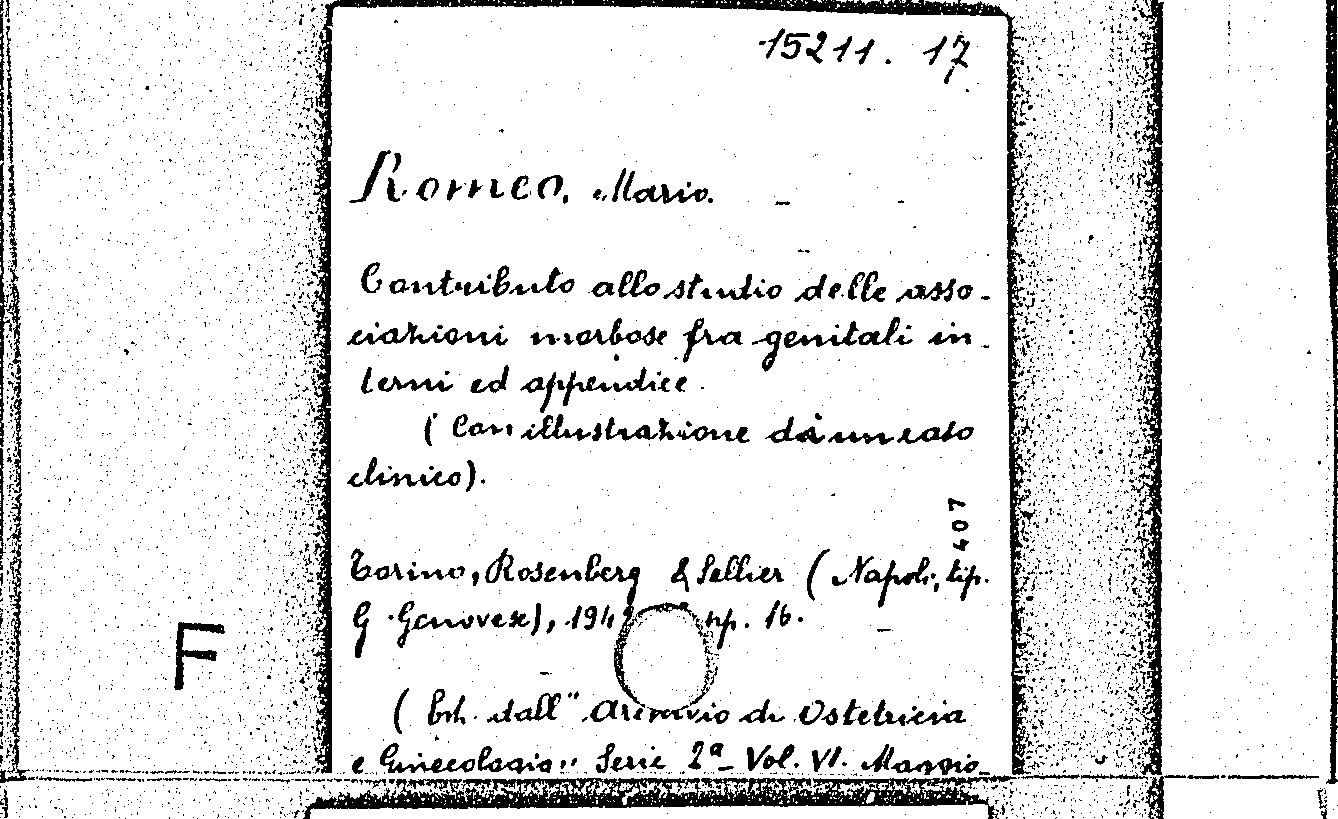 15211. 17
Romeo, Mario.
Contributo allo studio delle asso-
ciazioni morbose fra genitali in-
terni ed appendice.
(Con illustrazione di un caso
clinico).
407
Torino, Rosenberg & Sellier (Napoli, tip.
G. Genovese), 194 pp. 16.
F
( Estr. dall'" Archivio di Ostetricia
e Ginecologia,, Serie 2ª Vol. VI. Maggio